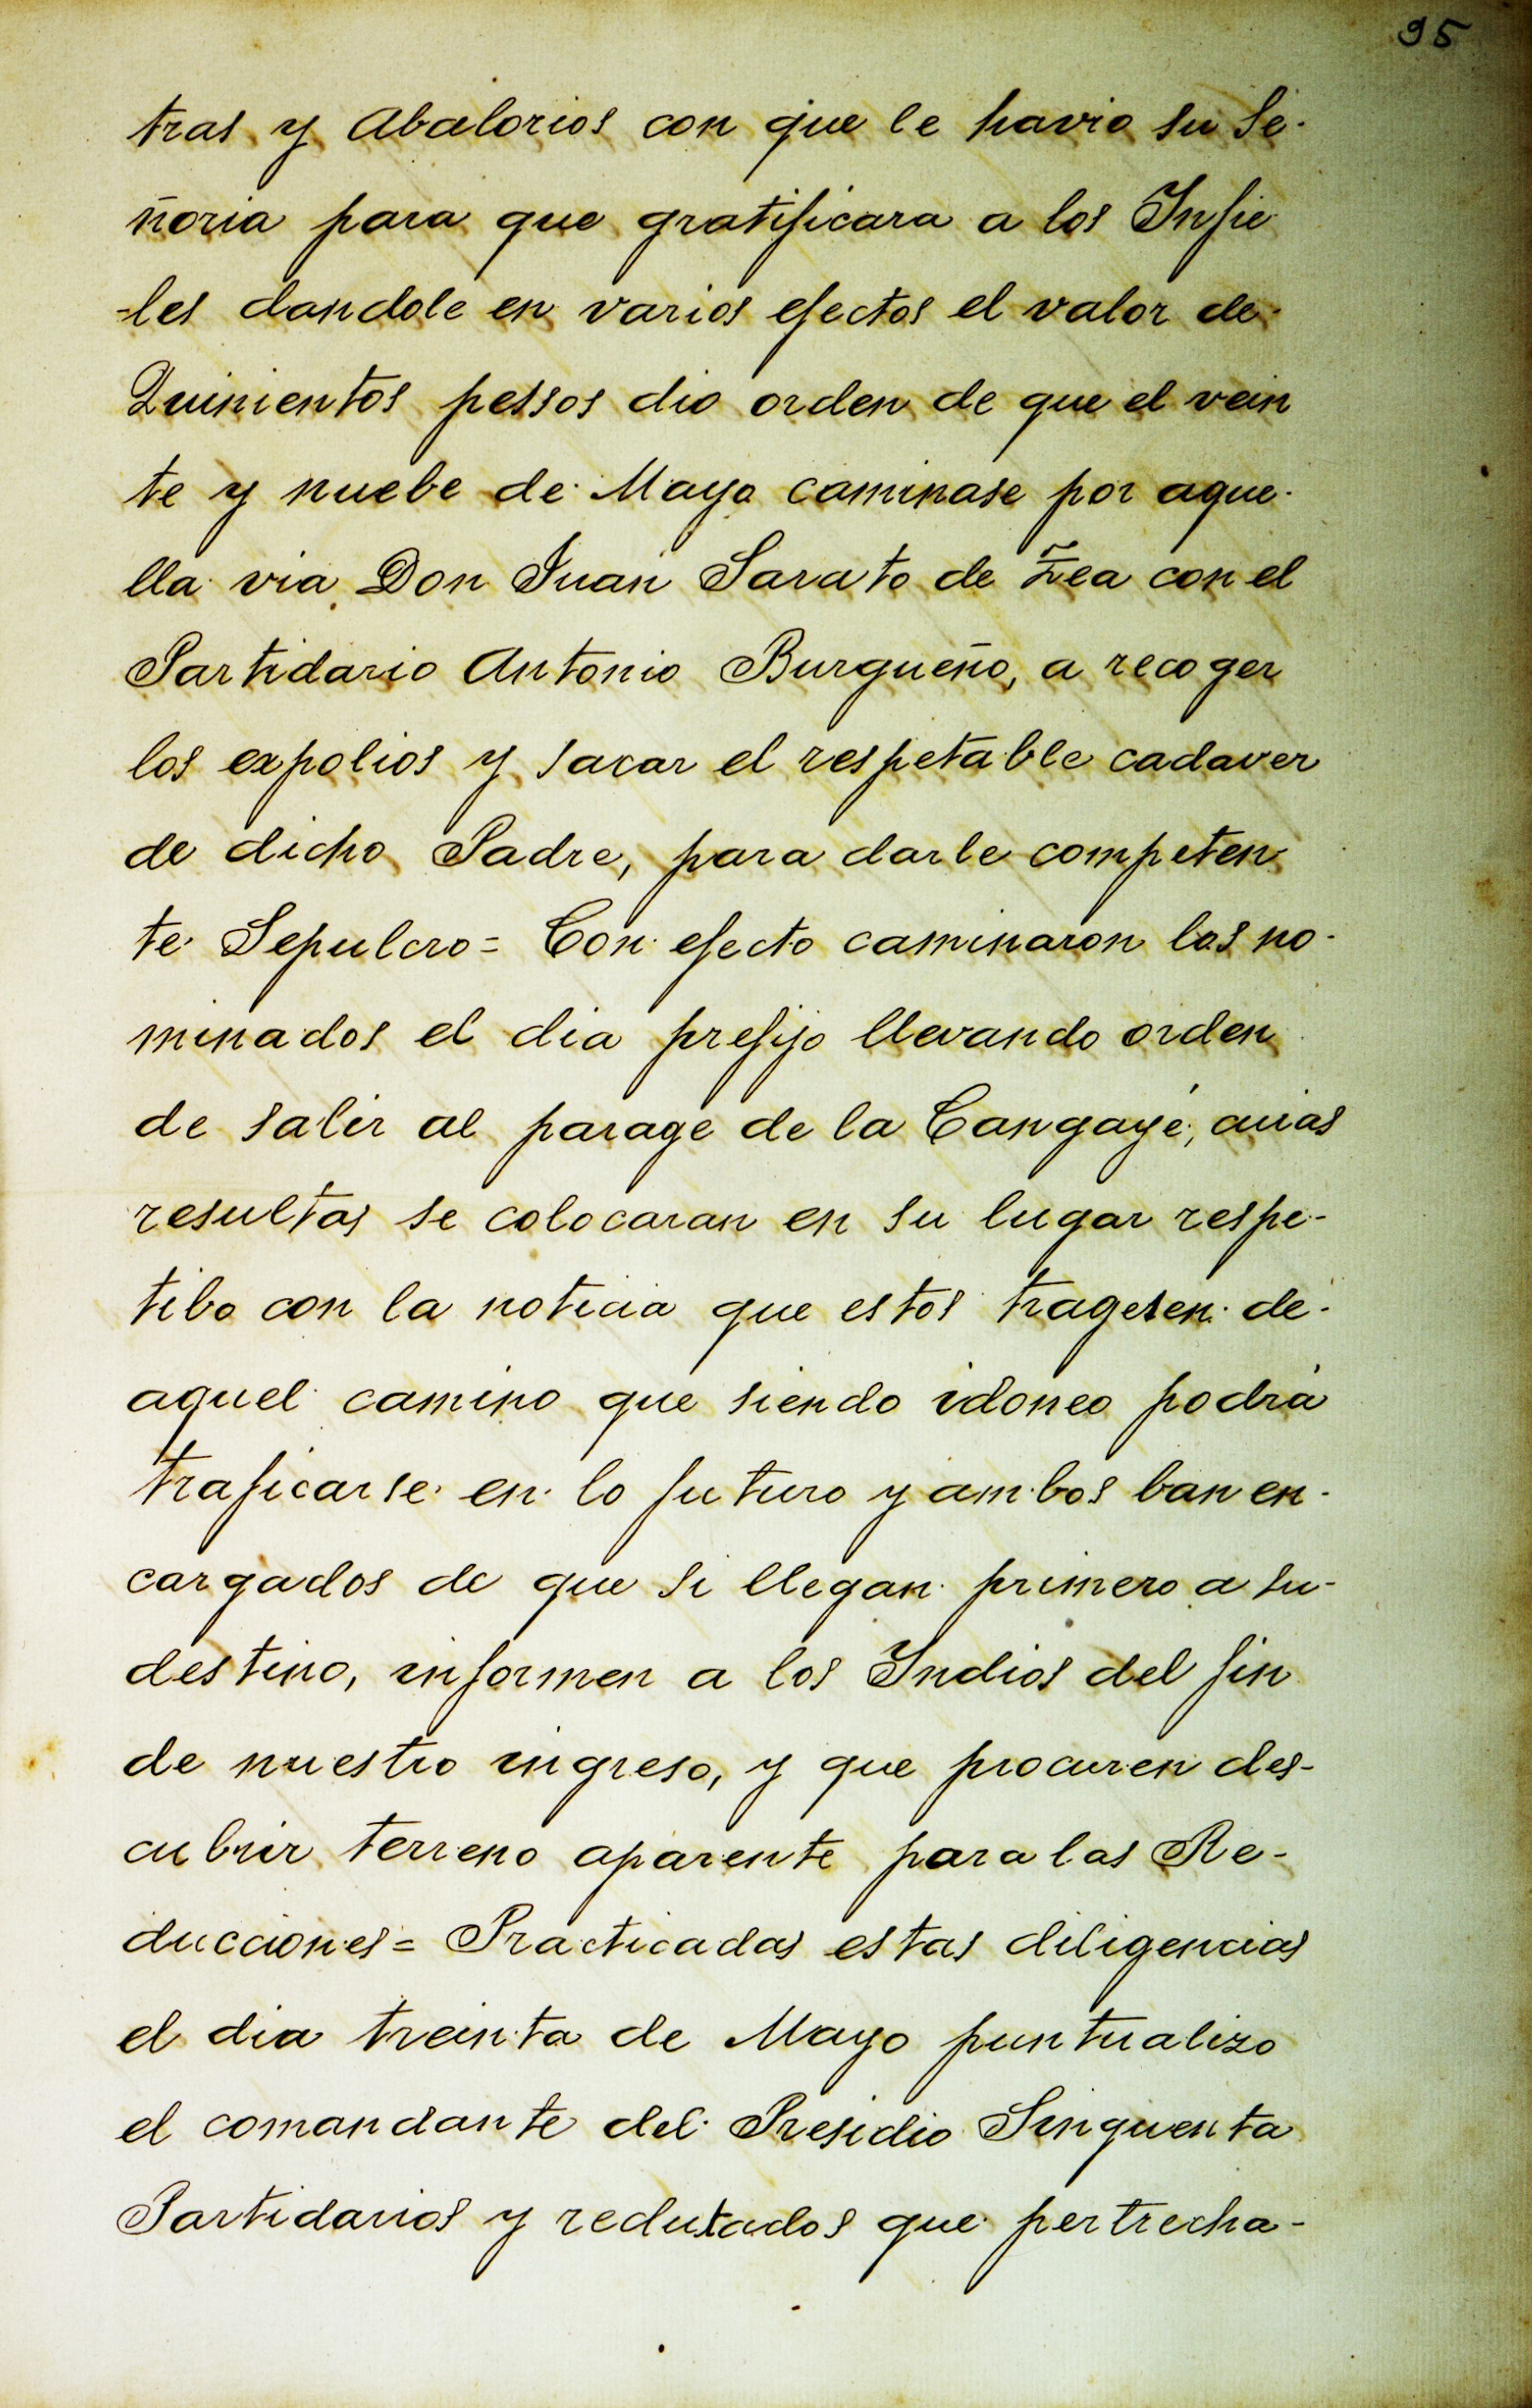 95
tras y Abalorios con que le havio su Se-
ñoria para que gratificara a los Infie
-les dandole en varios efectos el valor de
Quinientos pessos dio orden de que el vein
te y nuebe de Mayo caminase por aque-
lla via Don Juan Sarato de Zea con el
Partidario Antonio Burgueño, a recoger
los expolios y sacar el respetable cadaver
de dicho Padre, para darle competen
te Sepulcro = Con efecto caminaron los no-
minados el dia prefijo llevando orden
de salir al parage de la Cangayé, cuias
resultas se colocaran en su lugar respe-
tibo con la noticia que estos tragesen de
aquel camino que siendo idoneo podrá
traficarse en lo futuro y ambos ban en-
cargados de que si llegan primero a su-
destino, informen a los Indios del fin
de nuestro ingreso, y que procuren des-
cubrir terreno aparente para las Re-
ducciones = Practicadas estas diligencias
el dia treinta de Mayo puntualizo
el comandante del Presidio Sinquenta
Partidarios y reclutados que pertrecha-